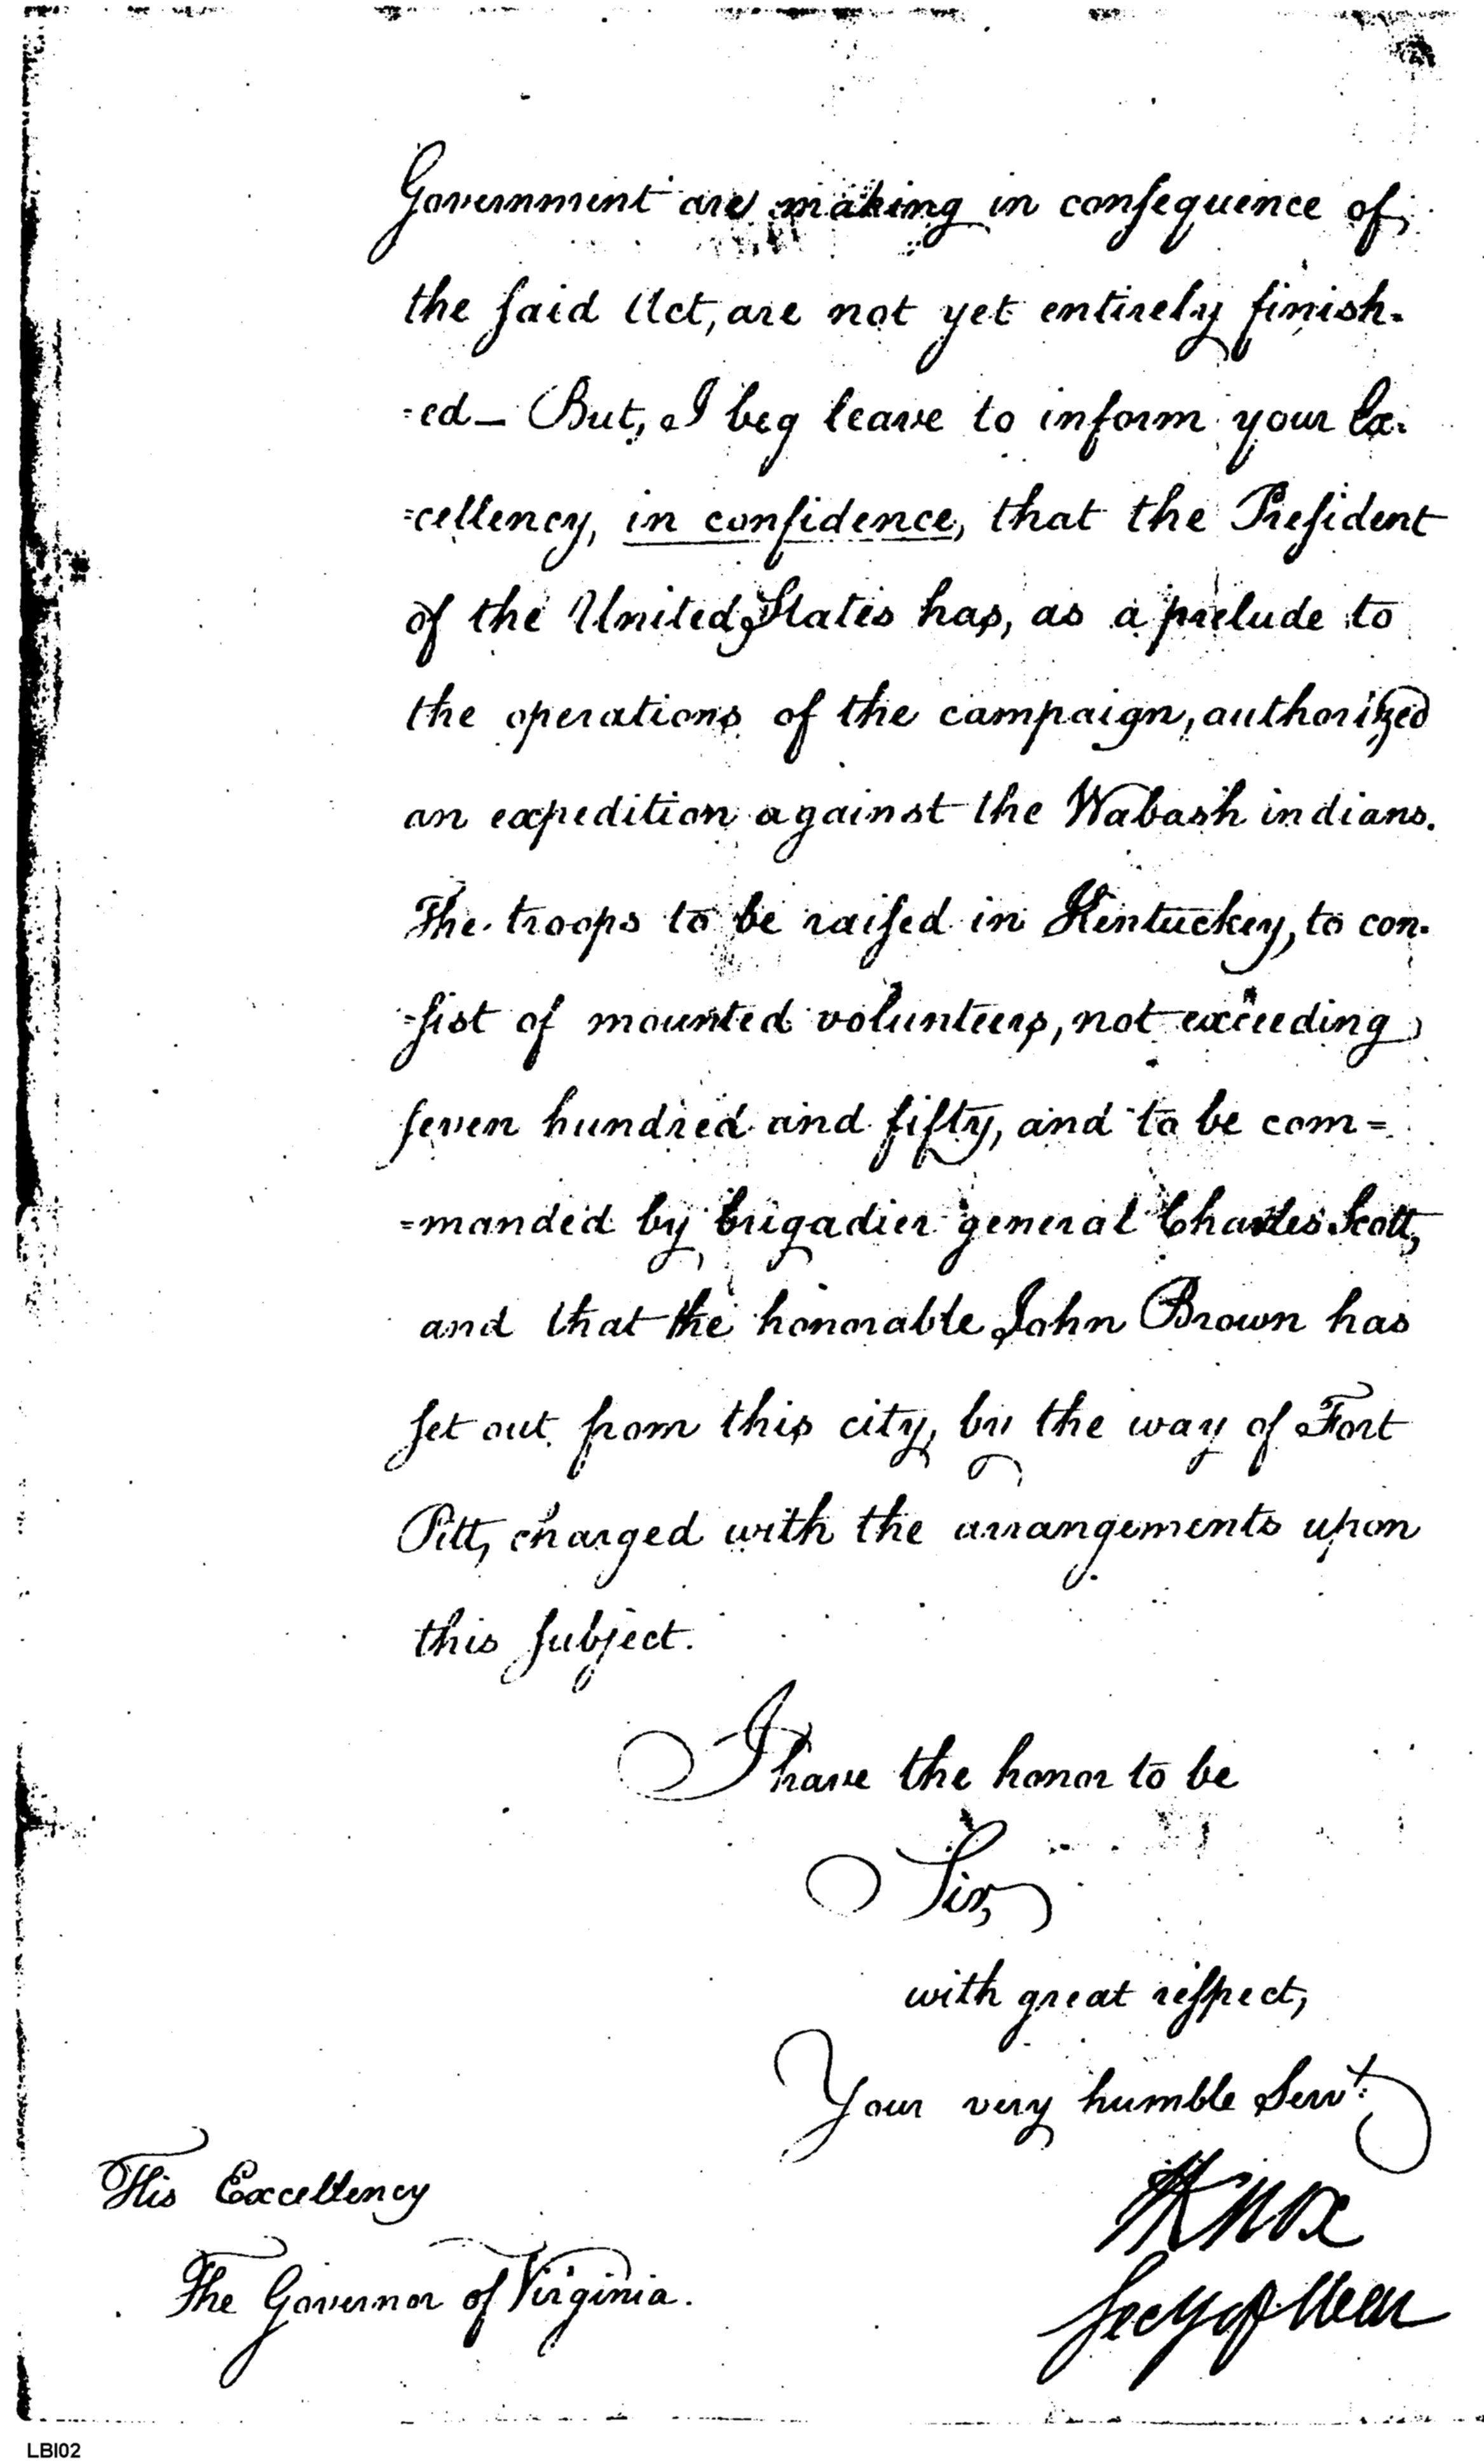 Government are making in consequence of
the said Act, are not yet entirely finish-
=ed— But, I beg leave to inform your Ex-
=cellency, in confidence, that the President
of the United States has, as a prelude to
the operations of the campaign, authorized
an expedition against the Wabash indians.
The troops to be raised in Kentucky, to con-
=sist of mounted volunteers, not exceeding
seven hundred and fifty, and to be com=
=manded by brigadier general Charles Scott,
and that the honorable John Brown has
set out from this city, by the way of Fort
Pitt, charged with the arrangements upon
this subject.
I have the honor to be
Sir,
with great respect,
Your very humble Servt.
HKnox
Secy of War
His Excellency
The Governor of Virginia.
LBI02